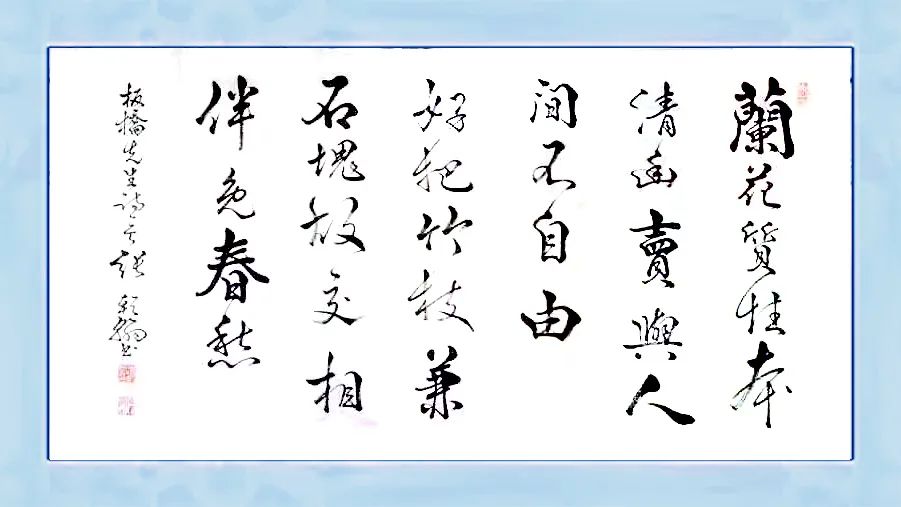 蘭花質性本
清幽賣與人
間不自由
好把竹枝兼
石塊故交相
伴免春愁
板橋先生詩